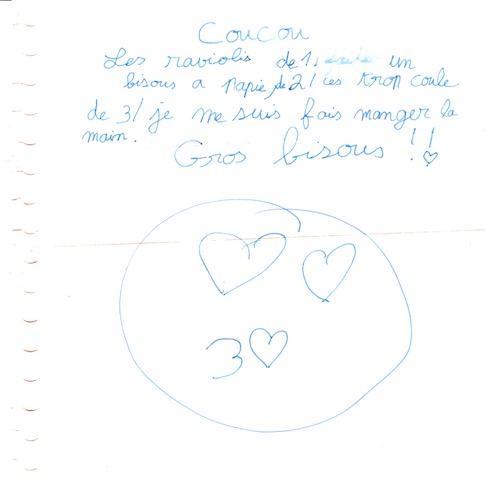 Coucou
Les raviolis de 1, un
bisous a papie, de 2/ ces trop coule
de 3/ je me suis fais manger la
main.
Gros bisous !!
3